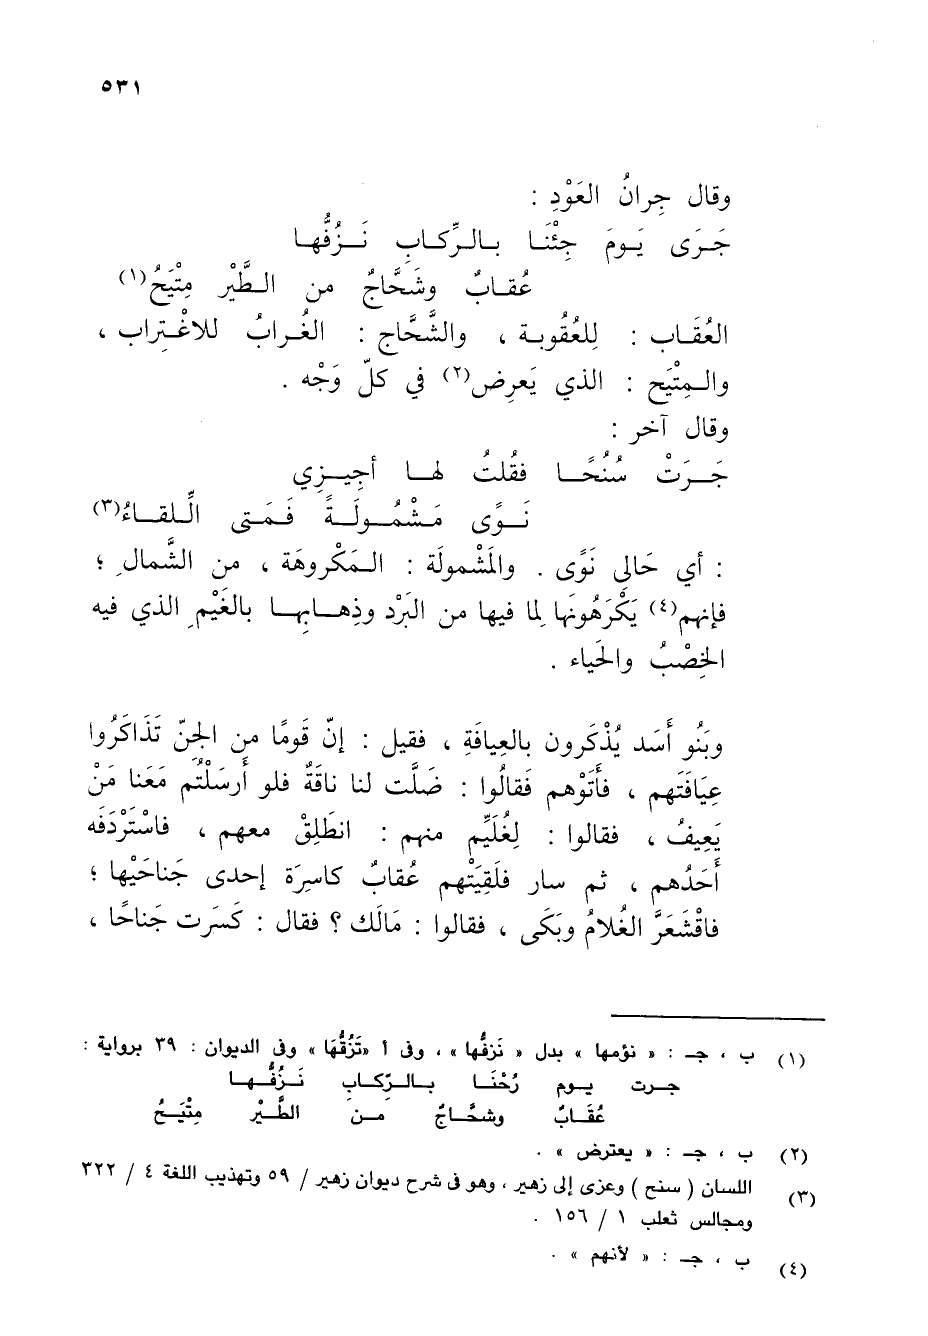 ٥٣١
وقال جِرانُ العَوْدِ :
جَرَى يَومَ جِئْنَا بالرِّكابِ نَزُفُّها
عُقابٌ وشَحَّاجٌ من الطَّيْرِ مِتْيَحُ(١)
العُقَاب : لِلعُقُوبة ، والشَّحَّاج : الغُرابُ للاغْتِراب ،
والمِتْيَح : الذي يَعرِض(٢) في كلّ وَجْه .
وقال آخر :
جَرَتْ سُنُحًا فقُلتُ لها أجِيزِي
نَوًى مَشْمُولَةً فَمَتى اللِّقاءُ(٣)
: أي خَالِي نَوًى . والمَشْمولَة : المَكْروهَة ، من الشَّمالِ ؛
فإنهم(٤) يَكْرَهُونَها لِما فيها من البَرْد وذِهابِها بالغَيْمِ الذي فيه
الخِصْبُ والحَياء .
وبَنُو أَسَد يُذْكَرون بالعِيافَةِ ، فقيل : إنّ قَومًا من الجنّ تَذَاكَرُوا
عِيَافَتَهم ، فأَتَوْهم فَقالُوا : ضَلَّت لنا ناقَةٌ فلو أَرسَلْتُم مَعَنا مَنْ
يَعِيفُ ، فقالوا : لِغُلَيِّم منهم : انطَلِقْ معهم ، فاسْتَرْدَفَه
أَحَدُهم ، ثم سار فلَقِيَتْهم عُقابٌ كاسِرَة إحدى جَناحَيْها ؛
فاقْشَعَرَّ الغُلامُ وبَكَى ، فقالوا : مَالَك ؟ فقال : كَسَرَت جَناحًا ،
(١) ب ، جـ : « نؤمها » بدل « نَزفُّها » ، وفى أ «تَزُفُّهَا » وفى الديوان : ٣٩ برواية :
جرت يوم رُحْنَا بالرِّكابِ نَزُفُّها
عُقَابٌ وشحَّاجٌ من الطَّيْرِ مِتْيَحُ
(٢) ب ، جـ : « يعترض » .
(٣) اللسان ( سنح ) وعزى إلى زهير ، وهو فى شرح ديوان زهير / ٥٩ وتهذيب اللغة ٤ / ٣٢٢
ومجالس ثعلب ١ / ١٥٦ .
(٤) ب ، جـ : « لأنهم » .